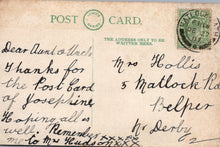 POST CARD.
THE ADDRESS ONLY TO BE
WRITTEN HERE.
Dear Aunt & Uncle
Thanks for
the Post Card
of Josephine
Hoping all is
well. Remember
me to Mrs Hudson xxxx
xxxxx
Mrs Hollis
5 Matlock Rd
Belper
Nr Derby